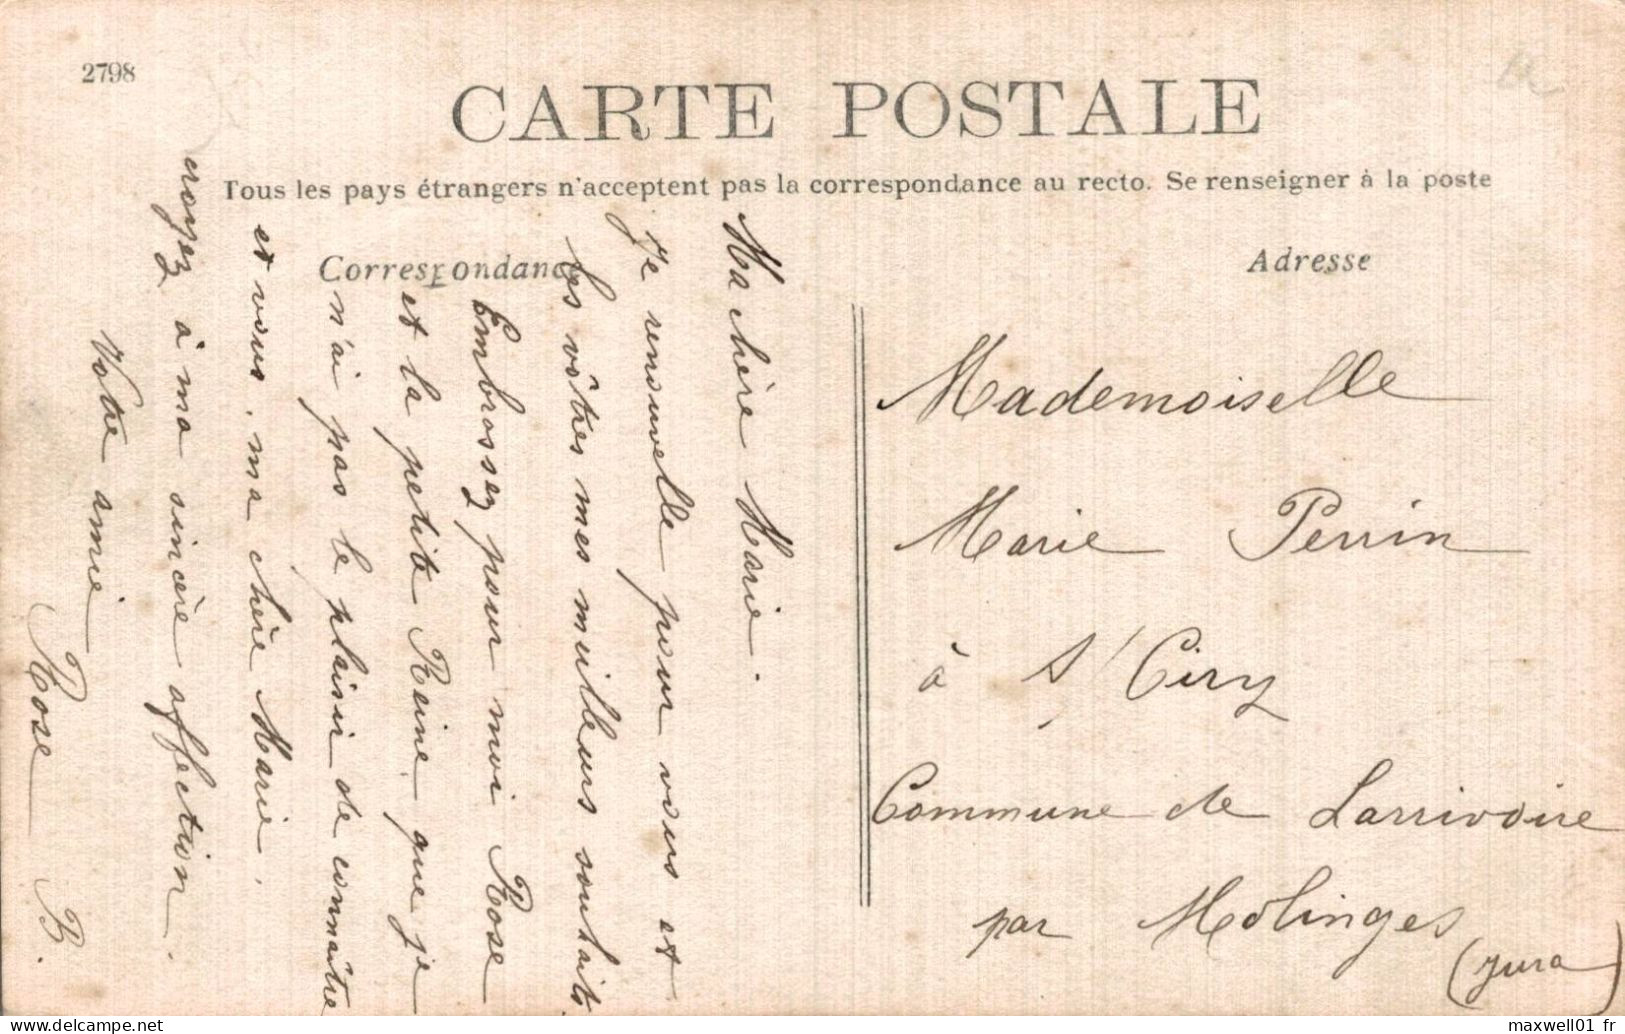 2798
CARTE POSTALE
Tous les pays étrangers n'acceptent pas la correspondance au recto. Se renseigner à la poste
Correspondance
Adresse
Ma chère Marie.
Je renouvelle pour vous et
les vôtres mes meilleurs souhaits.
Embrassez pour moi Rose
et la petite Reine que je
n'ai pas le plaisir de connaître
et vous, ma chère Marie,
croyez à ma sincère affection.
Votre amie
Rose B.
Mademoiselle
Marie Perrin
à St Ciry
Commune de Larrivoire
par Molinges
(Jura)
maxwell01 fr